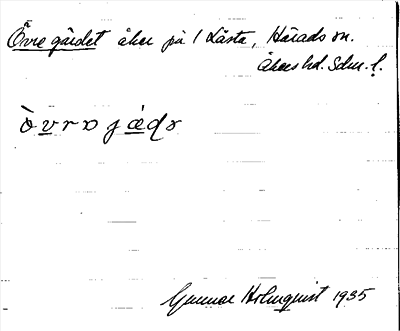 Övre gärdet åker på 1 Lårsta, Härads sn.
Åkers hd. Sdm. l.
òvrɷ jädɤ
Gunnar Holmquist 1935